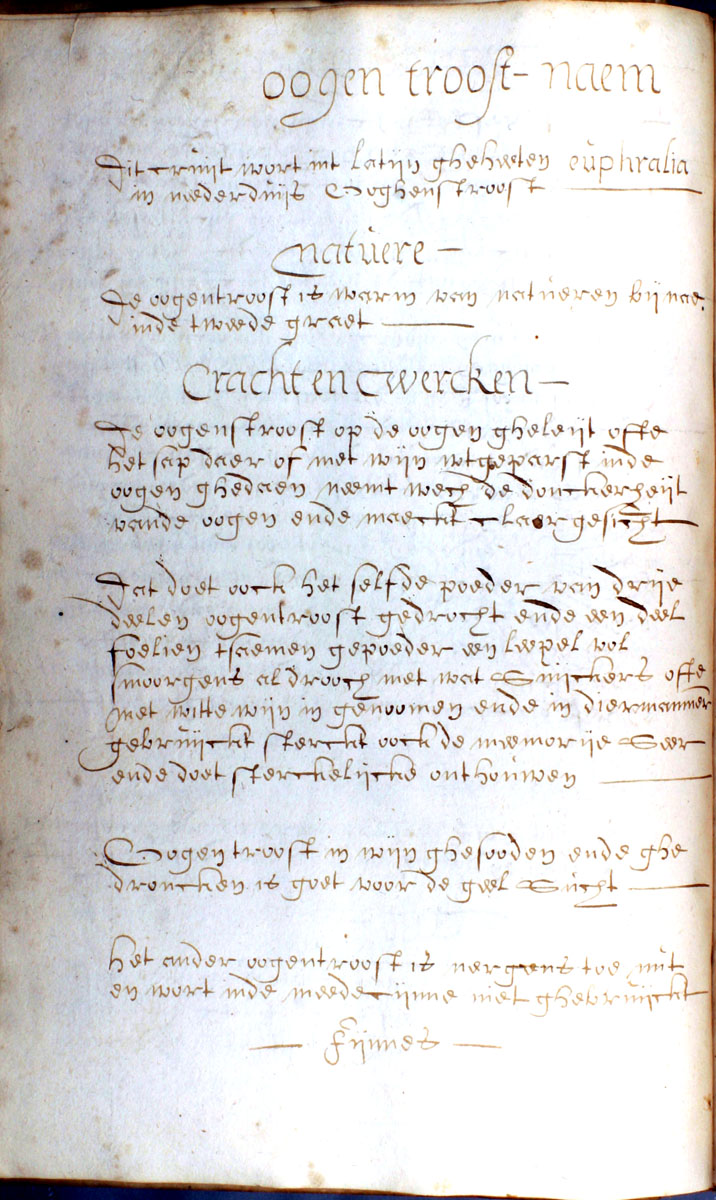 oogen troost - naem
Dit cruijt wort int latijn gheheeten euphralia
in neederduijs Ooghenstroost
natuere -
De oogentroost is warm van natueren bij nae
inde tweede graet
Cracht en Twercken -
De oogenstroost op de oogen gheleijt offe
het sap daer of met wijn wtgeparst inde
oogen ghedaen neemt wech de donckerheijt
vande oogen ende maeckt claer gesicht
Dat doet oock het selfde poeder van drije
deelen oogentroost gedrocht ende een deel
foelien tsaemen gepoeder een leepel vol
smorgens al drooch met wat Suijckers offe
met witte wijn in genoomen ende in dier manmer
gebruijckt sterckt oock de meemorije Seer
ende doet sterckelijcke onthouwen
Oogentroost in wijn ghesooden ende ghe
droncken is goet voor de geel Sucht
het ander oogentroost is nergens toe nut
en wort inde meedecijnne niet ghebruijckt
- fijnnes -